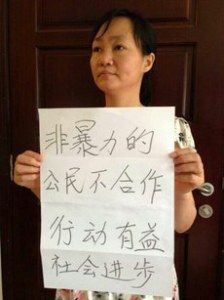 非暴力的
公民不合作
行动有益
社会进步